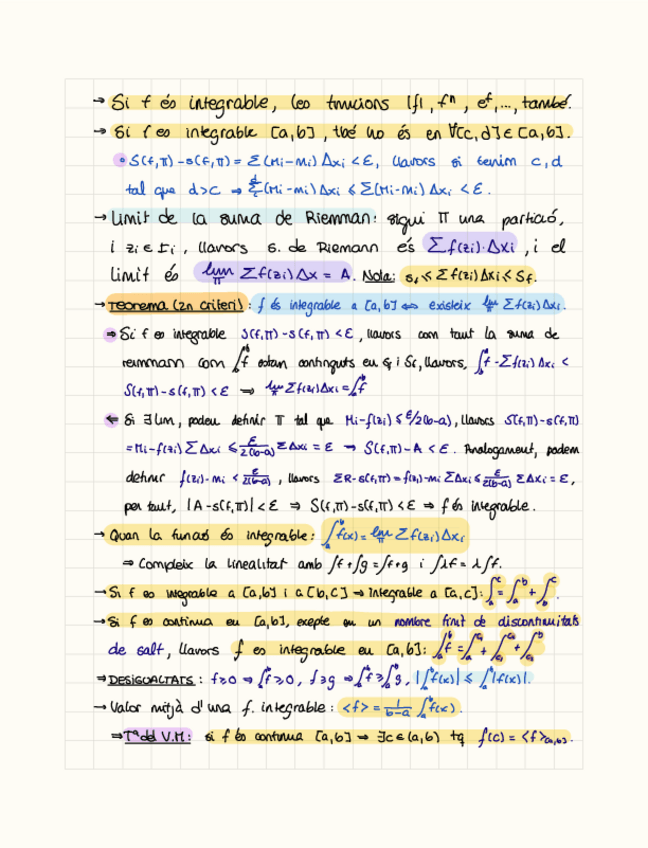 → Si f és integrable, les funcions |f|, fⁿ, eᶠ,..., també.
→ Si f es integrable [a,b], tbé ho és en ∀[c,d]∈[a,b].
• S(f,π)-s(f,π)= Σ(Mi-mi) Δxi < ε, llavors si tenim c,d
tal que d>c ⇒ Σ_c^d(Mi-mi) Δxi ≤ Σ(Mi-mi) Δxi < ε.
→ Límit de la suma de Riemman: sigui π una partició,
i zi ∈ Ii, llavors s. de Riemann és Σ f(zi)·Δxi, i el
límit és lim_π Σ f(zi) Δx = A. Nota: s_f ≤ Σ f(zi) Δxi ≤ S_f.
→ Teorema (2n criteri): f és integrable a [a,b] ⇔ existeix lim_π Σ f(zi) Δxi.
⇒ Si f es integrable S(f,π)-s(f,π) < ε, llavors com tant la suma de
reimmann com ∫_a^b f estan continguts en s_f i S_f, llavors, ∫_a^b f - Σ f(zi) Δxi <
S(f,π)-s(f,π) < ε ⇒ lim_π Σ f(zi) Δxi = ∫_a^b f
⇐ Si ∃ lim, podem definir π tal que Mi-f(zi) ≤ ε/2(b-a), llavors S(f,π)-s(f,π)
= Mi-f(zi) Σ Δxi ≤ ε/2(b-a) Σ Δxi = ε ⇒ S(f,π)-A < ε. Analogament, podem
definir f(zi)-mi < ε/2(b-a), llavors ΣR-s(f,π)= f(zi)-mi Σ Δxi ≤ ε/2(b-a) Σ Δxi = ε,
per tant, |A-s(f,π)| < ε ⇒ S(f,π)-s(f,π) < ε ⇒ f és integrable.
→ Quan la funció és integrable: ∫_a^b f(x) = lim_π Σ f(zi) Δxi
⇒ Compleix la linealitat amb ∫f+∫g = ∫f+g i ∫λf = λ∫f.
→ Si f es integrable a [a,b] i a [b,c] ⇒ Integrable a [a,c]: ∫_a^c = ∫_a^b + ∫_b^c
→ Si f es continua en [a,b], exepte en un nombre finit de discontinuitats
de salt, llavors f es integrable en [a,b]: ∫_a^b f = ∫_a^c₁ + ∫_c₁^c₂ + ∫_c₂^b
⇒ DESIGUALTATS: f≥0 ⇒ ∫_a^b f ≥ 0, f≥g ⇒ ∫_a^b f ≥ ∫_a^b g, |∫_a^b f(x)| ≤ ∫_a^b |f(x)|.
→ Valor mitjà d'una f. integrable: <f> = 1/(b-a) ∫_a^b f(x).
⇒ Tª del V.M: si f és continua [a,b] ⇒ ∃c ∈ (a,b) tq f(c) = <f>_[a,b].